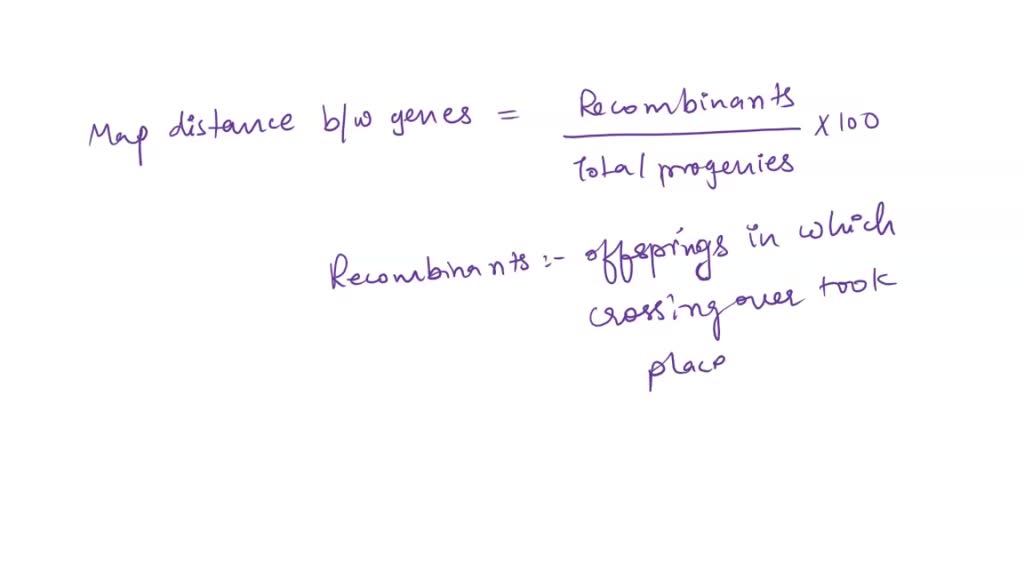 Map distance b/w genes = Recombinants / Total progenies X 100
Recombinants :- offsprings in which
crossing over took
place